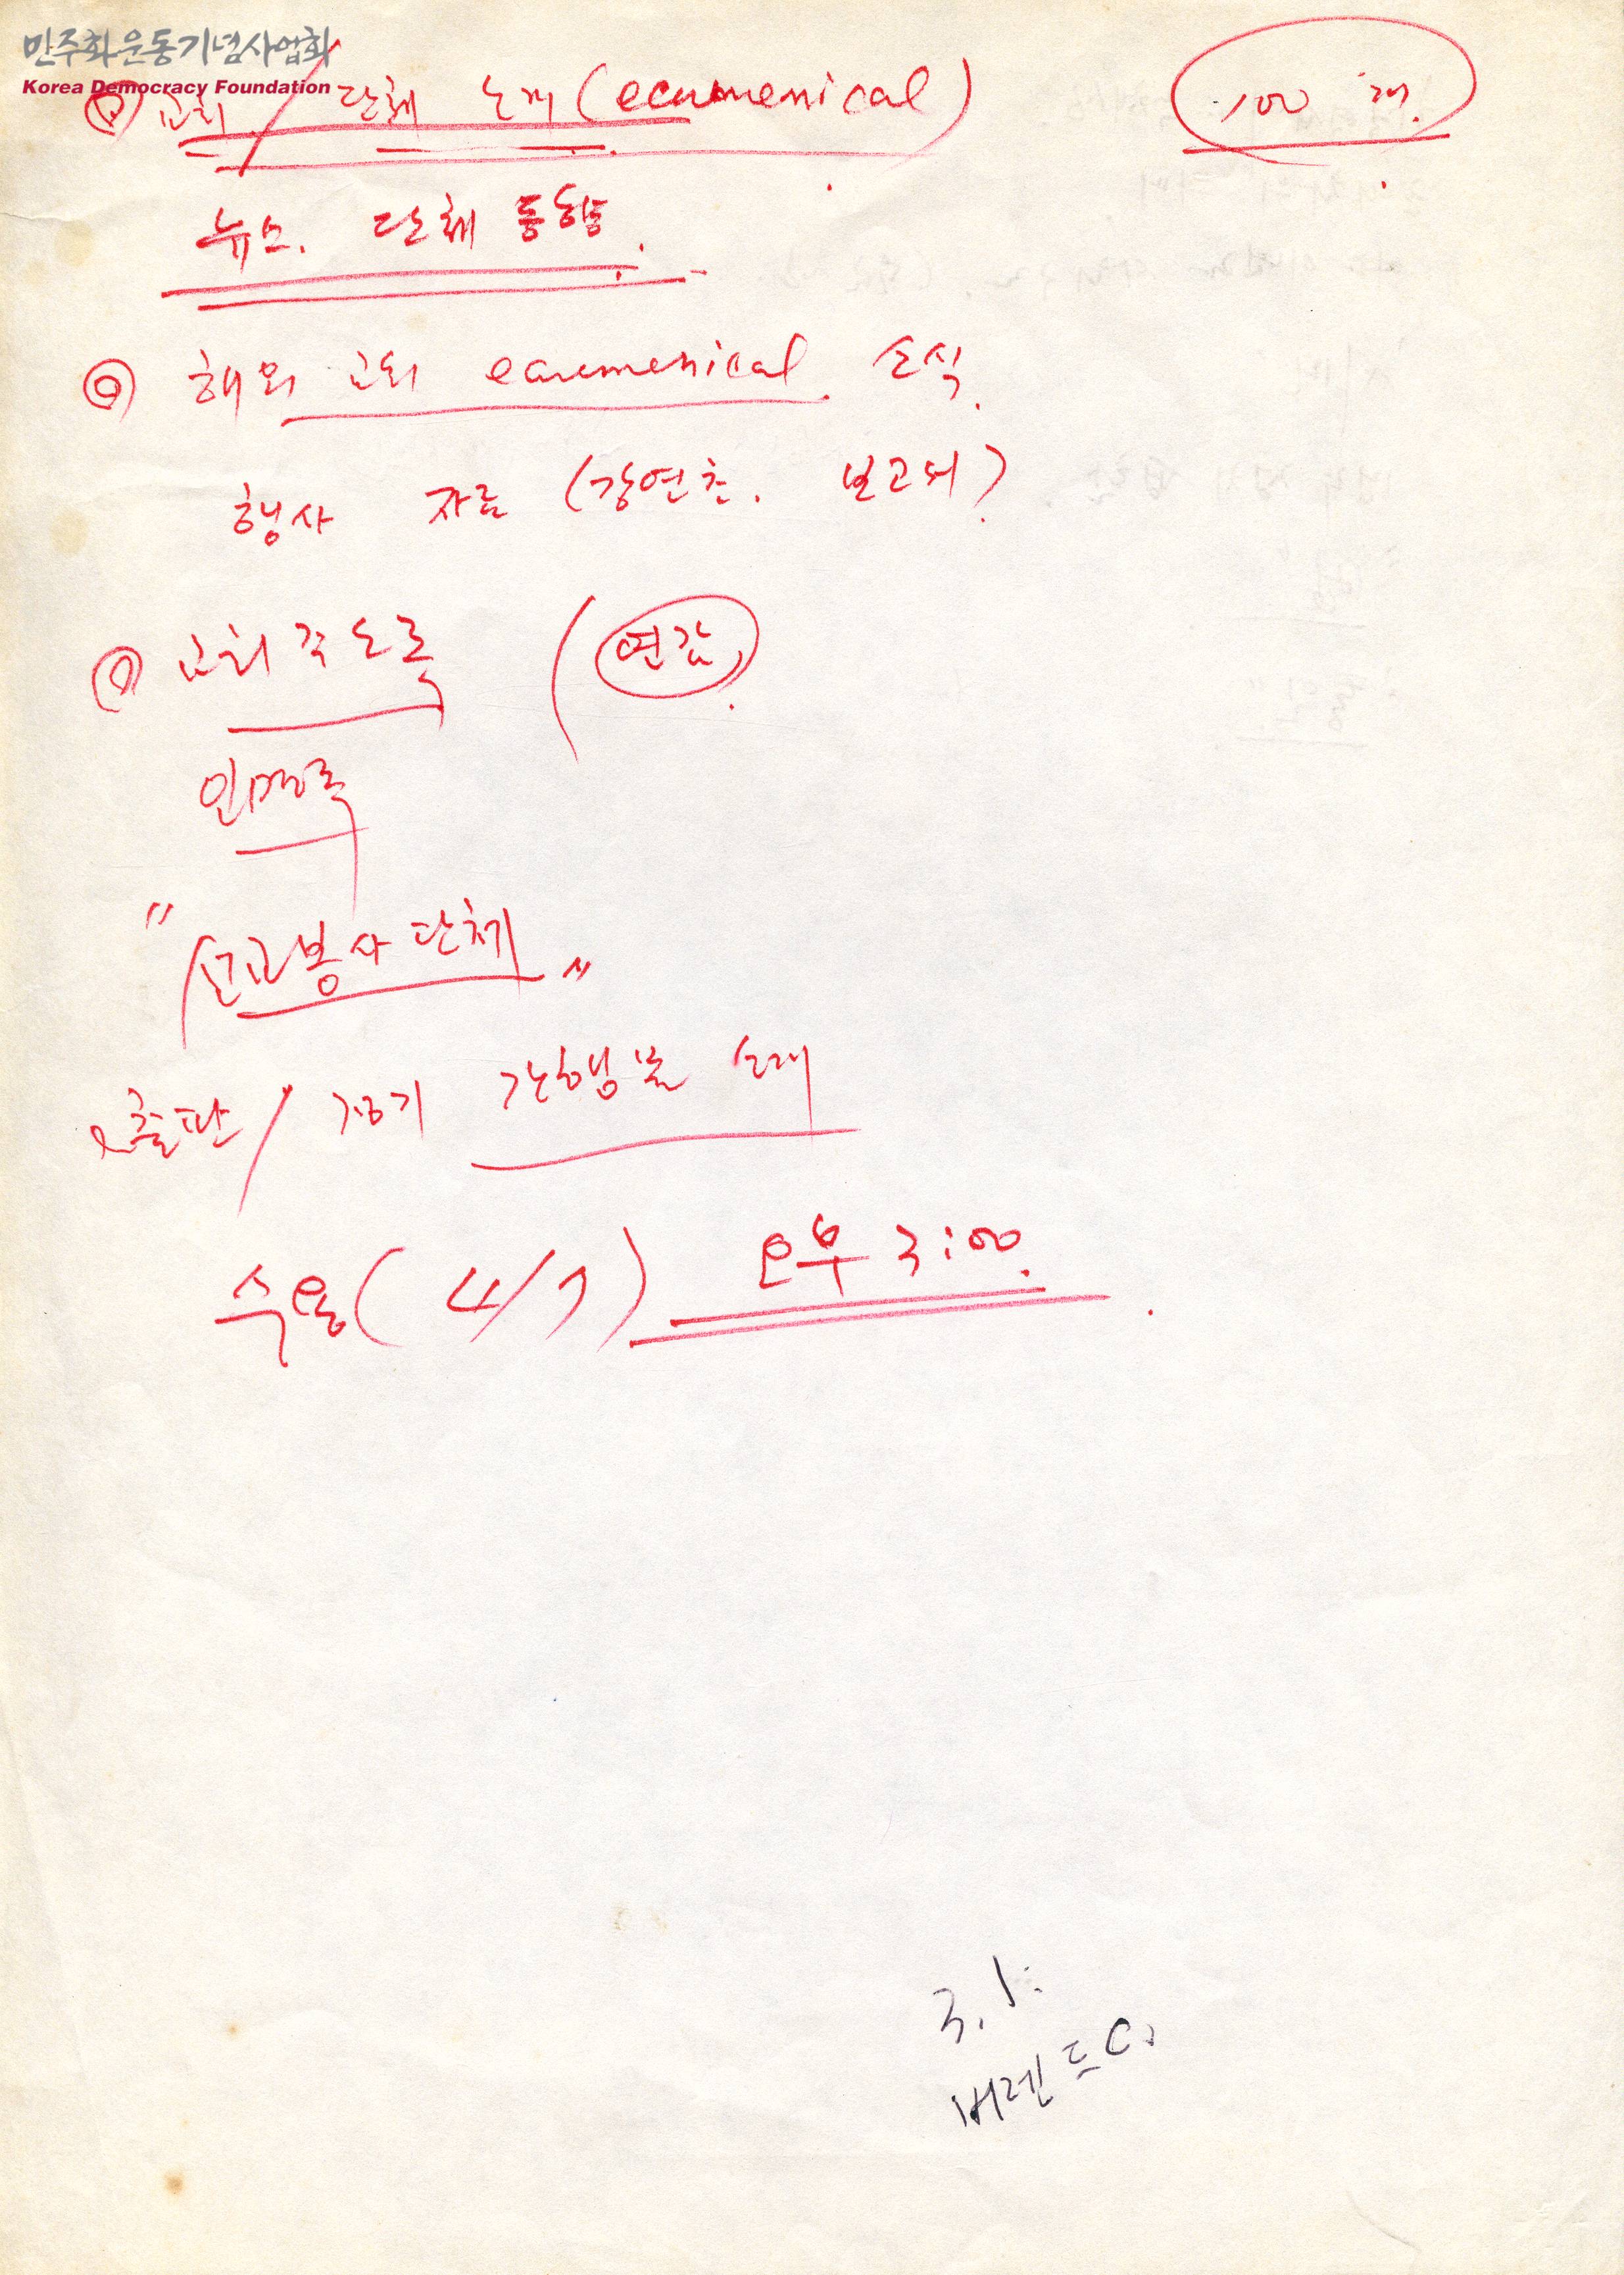 민주화운동기념사업회
Korea Democracy Foundation
◎ 교회 / 단체 논계 (ecumenical) 100 개.
뉴스. 단체 동향.
◎ 해외 교회 ecumenical 소식.
행사 자료 (강연초. 보고서)
◎ 교회 주소록 (연감)
인명록
"선교봉사단체"
출판 / 정기 간행물 소개
수요일 (4/7) 오후 3:00.
3.1:
버렌드C.